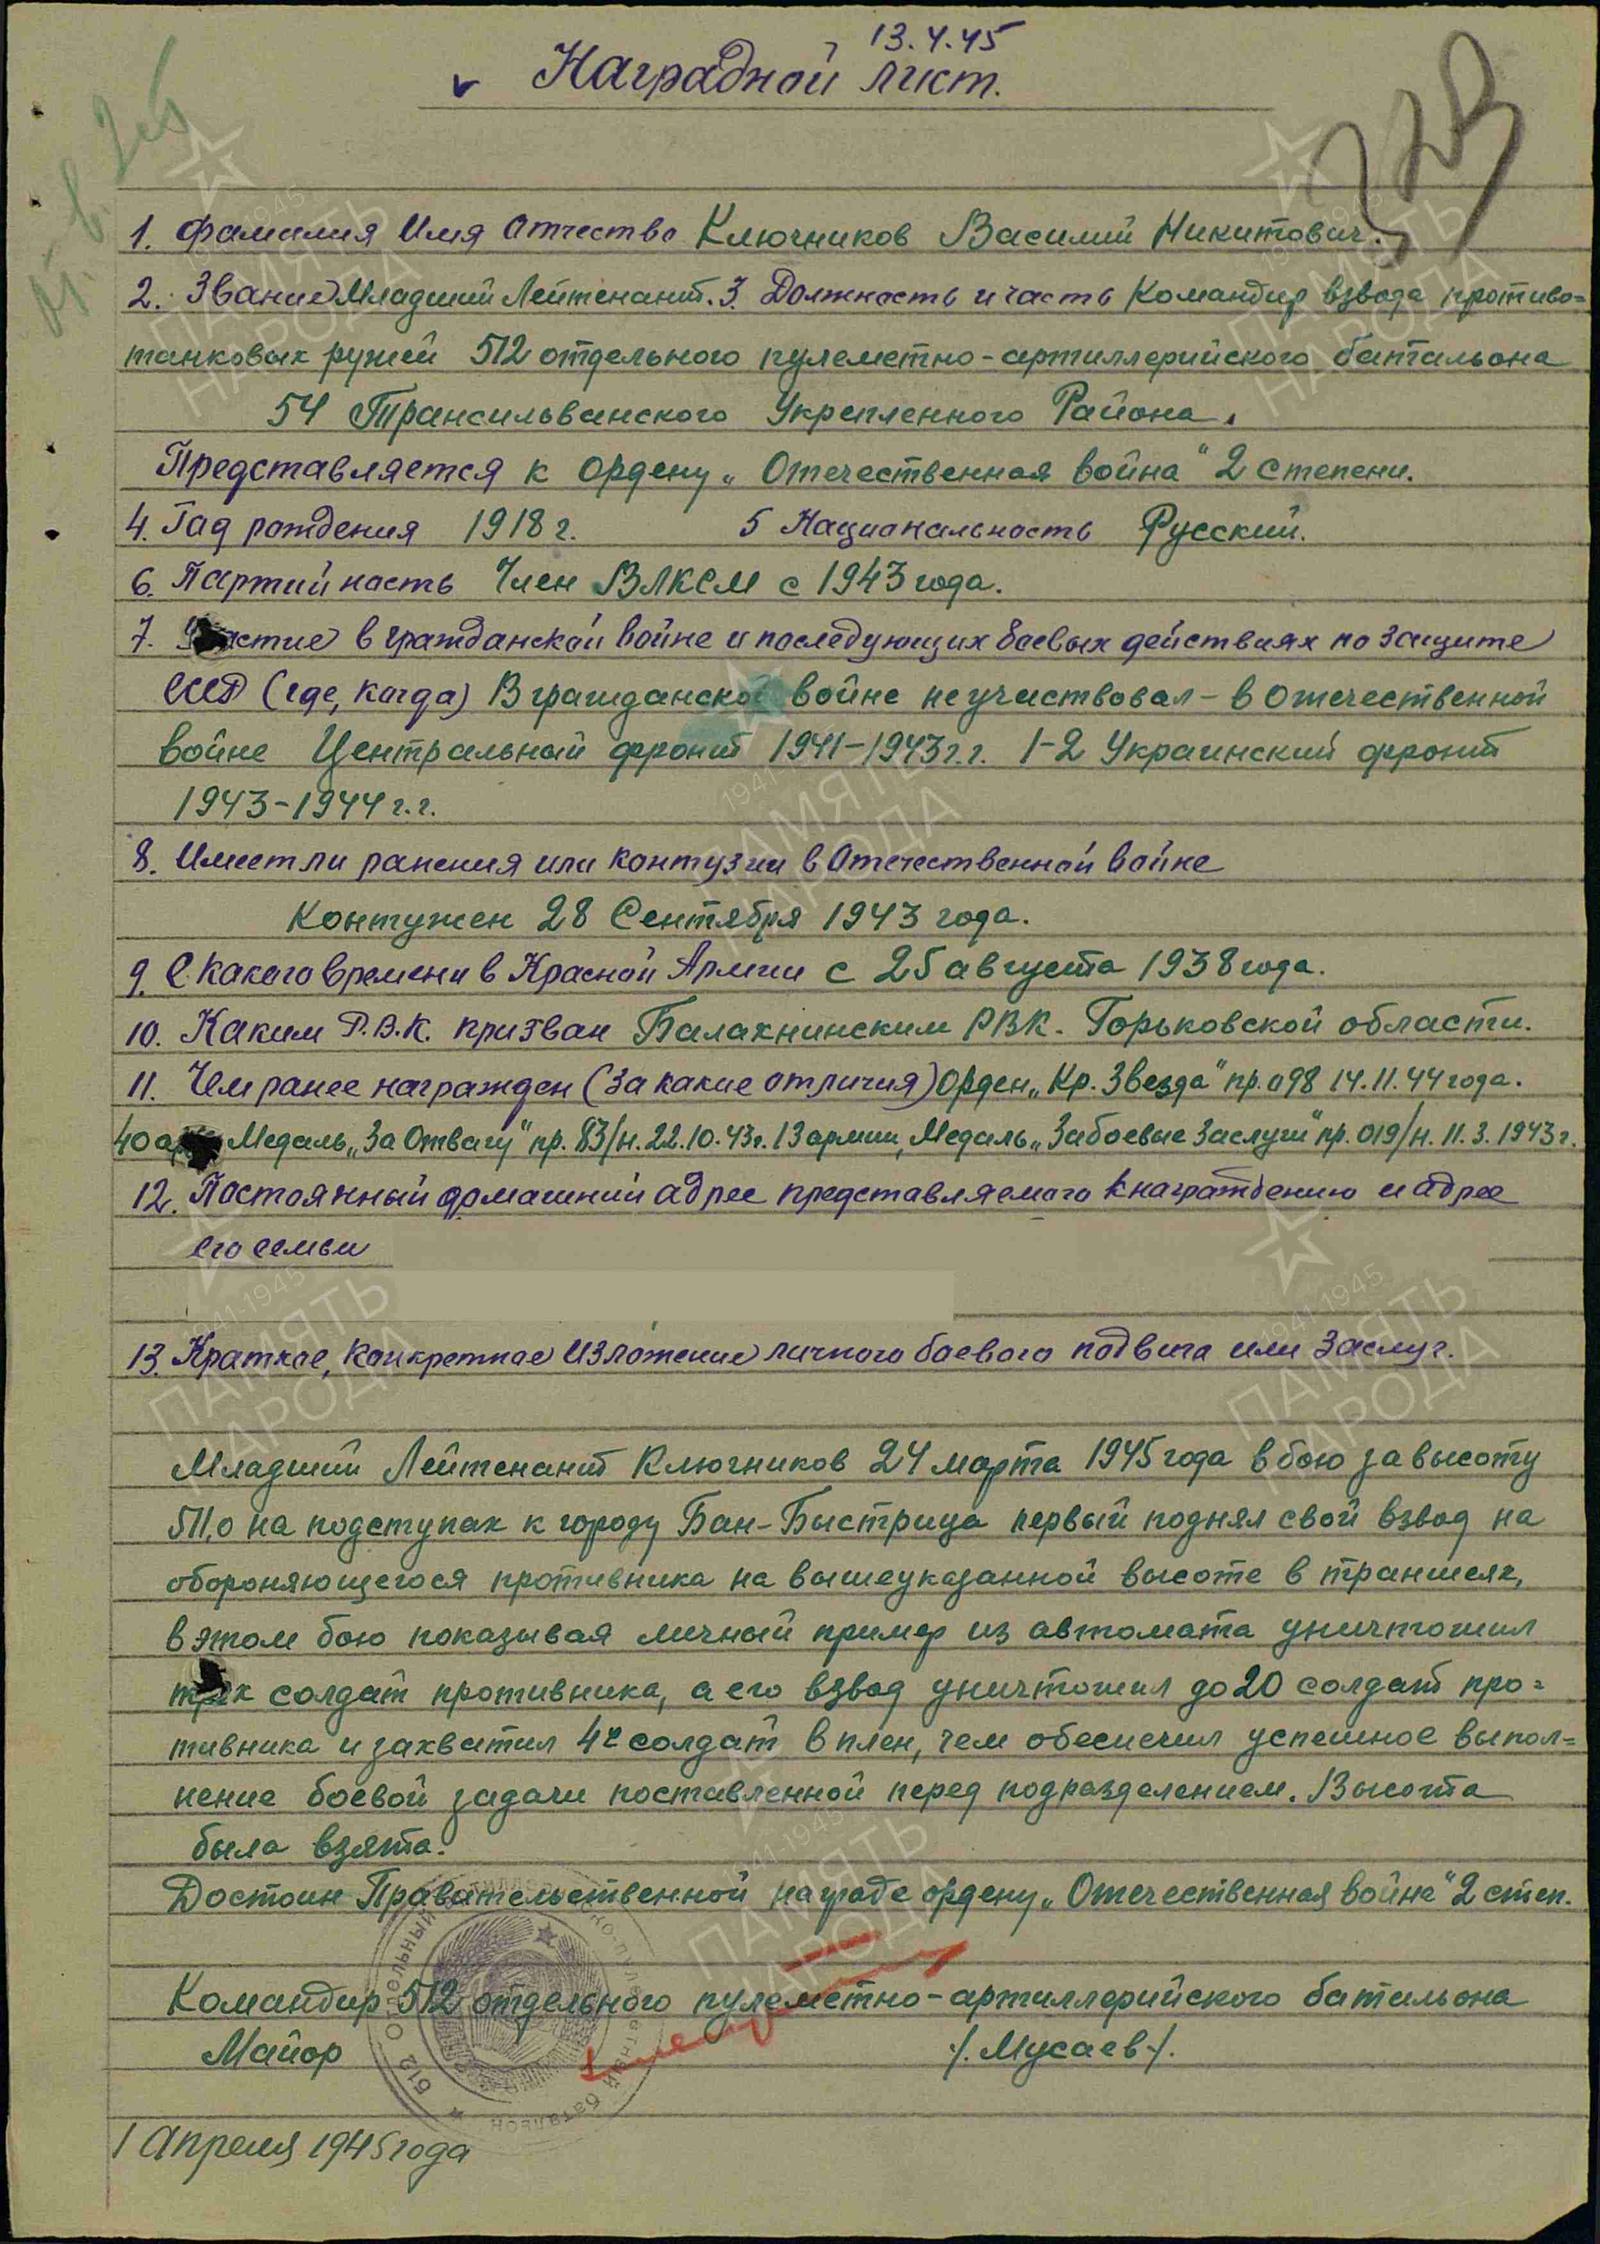 13.4.45
Наградной лист.
1. Фамилия Имя Отчество Ключников Василий Никитович.
2. Звание Младший Лейтенант. 3. Должность и часть Командир взвода противо=
танковых ружей 512 отдельного пулеметно-артиллерийского батальона
54 Трансильванского Укрепленного Района.
Представляется к ордену „Отечественная война" 2 степени.
4. Год рождения 1918 г. 5 Национальность Русский.
6. Партийность Член ВЛКСМ с 1943 года.
7. Участие в гражданской войне и последующих боевых действиях по защите
СССР (где, когда) В гражданской войне не участвовал - в Отечественной
войне Центральный фронт 1941-1943 г.г. 1-2 Украинский фронт
1943-1944 г.г.
8. Имеет ли ранения или контузии в Отечественной войне
Контужен 28 Сентября 1943 года.
9. С какого времени в Красной Армии с 25 августа 1938 года.
10. Каким Р.В.К. призван Балахнинским РВК. Горьковской области.
11. Чем ранее награжден (за какие отличия) Орден „Кр. Звезда" пр. 098 14.11.44 года.
40 Медаль „За Отвагу" пр. 83/н. 22.10.43г. 13 армии, Медаль „За боевые Заслуги" пр. 019/н. 11.3.1943 г.
12. Постоянный домашний адрес представляемого к награждению и адрес
его семьи
13. Краткое, конкретное изложение личного боевого подвига или заслуг.
Младший Лейтенант Ключников 24 марта 1945 года в бою за высоту
511,0 на подступах к городу Бан-Быстрица первый поднял свой взвод на
обороняющегося противника на вышеуказанной высоте в траншеях,
в этом бою показывая личный пример из автомата уничтожил
трех солдат противника, а его взвод уничтожил до 20 солдат про=
тивника и захватил 4х солдат в плен, чем обеспечил успешное выпол=
нение боевой задачи поставленной перед подразделением. Высота
была взята.
Достоин Правительственной награде ордену „Отечественная война" 2 степ.
Командир 512 отдельного пулеметно-артиллерийского батальона
Майор /. Мусаев /.
1 Апреля 1945 года
512 Отдельный артиллерийско-пулеметный батальон
1941-1945
ПАМЯТЬ
НАРОДА